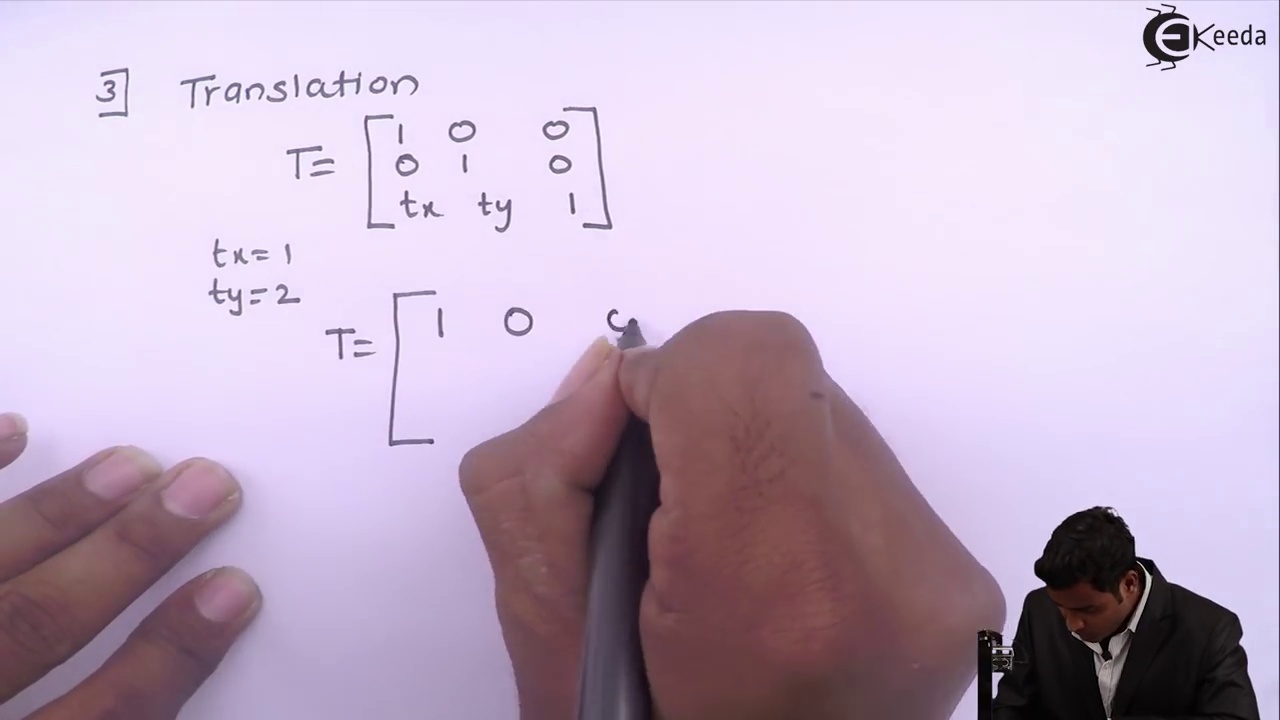 EKeeda
3] Translation
T= [ 1 0 0
0 1 0
tx ty 1 ]
tx=1
ty=2
T= [ 1 0